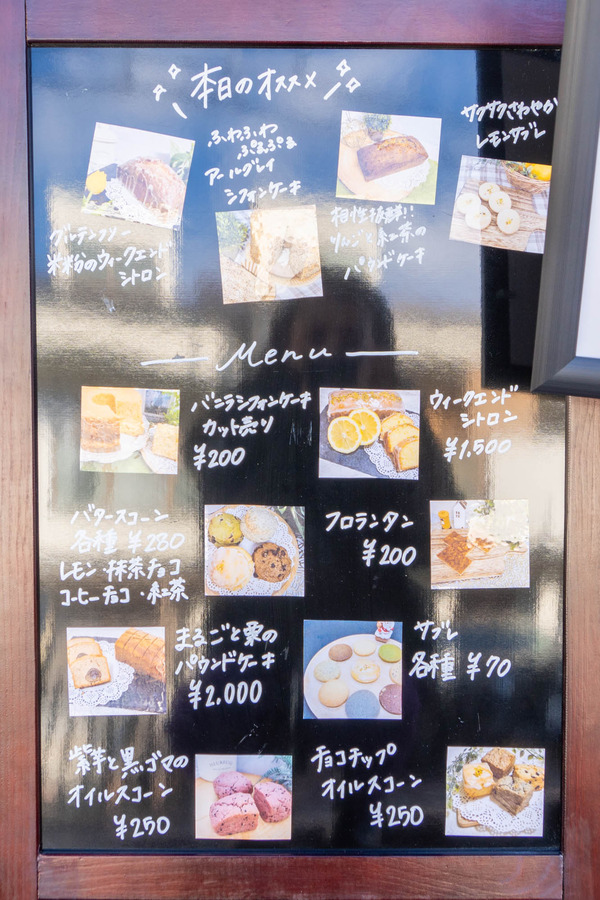 本日のオススメ
グルテンフリー
米粉のウィークエンド
シトロン
ふわふわ
ぷるぷる
アールグレイ
シフォンケーキ
相性抜群!!
りんごと紅茶の
パウンドケーキ
サクサクさわやか
レモンサブレ
Menu
バニラシフォンケーキ
カット売り
¥200
ウィークエンド
シトロン
¥1,500
バタースコーン
各種 ¥280
レモン・抹茶チョコ
コーヒーチョコ・紅茶
フロランタン
¥200
まるごと栗の
パウンドケーキ
¥2,000
サブレ
各種 ¥70
紫芋と黒ゴマの
オイルスコーン
¥250
チョコチップ
オイルスコーン
¥250